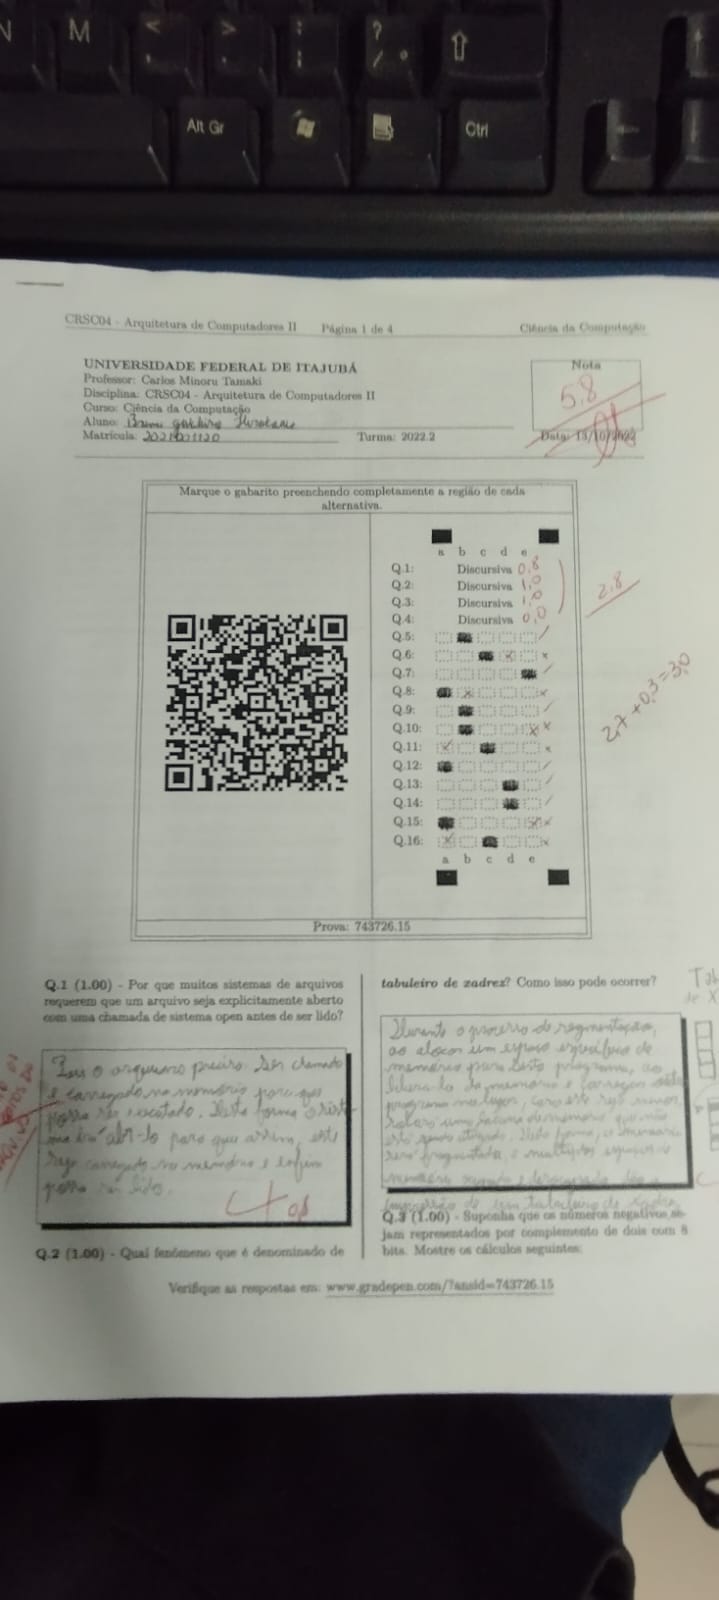 N M < , > . : ; ? / °
Alt Gr
Ctrl
CRSC04 - Arquitetura de Computadores II Página 1 de 4 Ciência da Computação
UNIVERSIDADE FEDERAL DE ITAJUBÁ
Professor: Carlos Minoru Tamaki
Disciplina: CRSC04 - Arquitetura de Computadores II
Curso: Ciência da Computação
Aluno:
Matrícula: Turma: 2022.2
Nota
5,8
Data: 13/10/2022
Marque o gabarito preenchendo completamente a região de cada
alternativa.
a b c d e
Q.1: Discursiva 0,8
Q.2: Discursiva 1,0
Q.3: Discursiva 1,0
Q.4: Discursiva 0,0
2,8
Q.5:
Q.6:
Q.7:
Q.8:
Q.9:
Q.10:
Q.11:
Q.12:
Q.13:
Q.14:
Q.15:
Q.16:
a b c d e
2,7 + 0,3 = 3,0
Prova: 743726.15
Q.1 (1.00) - Por que muitos sistemas de arquivos
requerem que um arquivo seja explicitamente aberto
com uma chamada de sistema open antes de ser lido?
o arquivo precisa ser chamado
e carregado na memória para que
possa ser executado. Desta forma o
abri-lo para que assim, este
seja carregado na memória e enfim
possa ser lido.
Q.2 (1.00) - Qual fenômeno que é denominado de
tabuleiro de xadrez? Como isso pode ocorrer?
Durante o processo de segmentação,
ao alocar um espaço específico de
memória para este programa, ao
libera-lo da memória e carregar outro
programa no lugar, caso este seja menor,
uma lacuna de memória que não
está sendo utilizado. Desta forma, a memória
será fragmentada, e múltiplos espaços de
memória
de um tabuleiro de xadrez
Q.3 (1.00) - Suponha que os números negativos se-
jam representados por complemento de dois com 8
bits. Mostre os cálculos seguintes:
Verifique as respostas em: www.gradepen.com/?ansid=743726.15